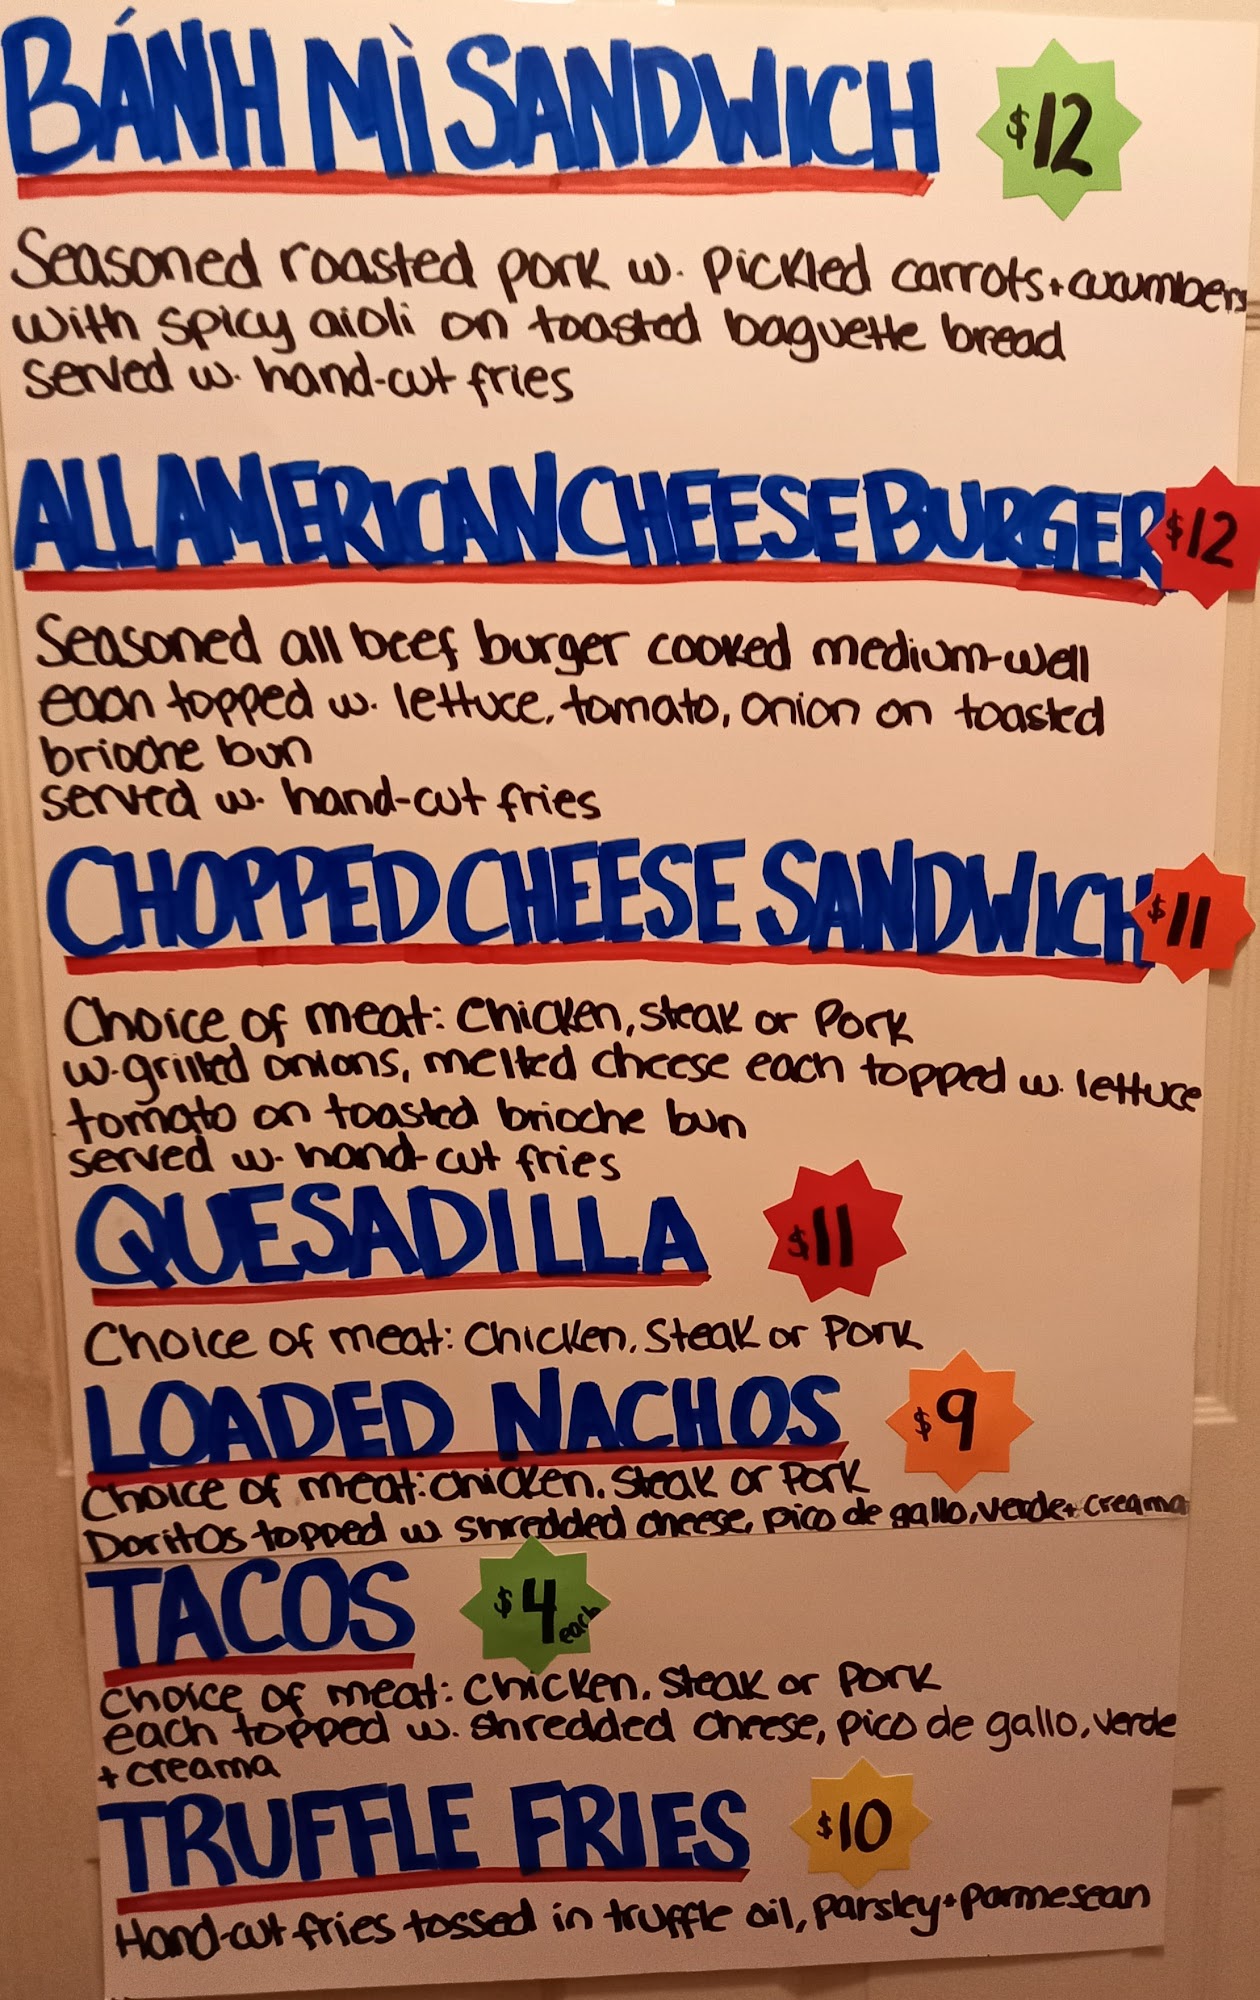 BÁNH MÌ SANDWICH $12
Seasoned roasted pork w. pickled carrots + cucumbers
with spicy aioli on toasted baguette bread
served w. hand-cut fries
ALL AMERICAN CHEESE BURGER $12
Seasoned all beef burger cooked medium-well
each topped w. lettuce, tomato, onion on toasted
brioche bun
served w. hand-cut fries
CHOPPED CHEESE SANDWICH $11
Choice of meat: Chicken, steak or Pork
w. grilled onions, melted cheese each topped w. lettuce
tomato on toasted brioche bun
served w. hand-cut fries
QUESADILLA $11
Choice of meat: Chicken, Steak or Pork
LOADED NACHOS $9
Choice of meat: chicken, Steak or Pork
Doritos topped w shredded cheese, pico de gallo, verde + creama
TACOS $4 each
Choice of meat: Chicken, Steak or Pork
each topped w. shredded cheese, pico de gallo, verde
+ creama
TRUFFLE FRIES $10
Hand-cut fries tossed in truffle oil, parsley + parmesean